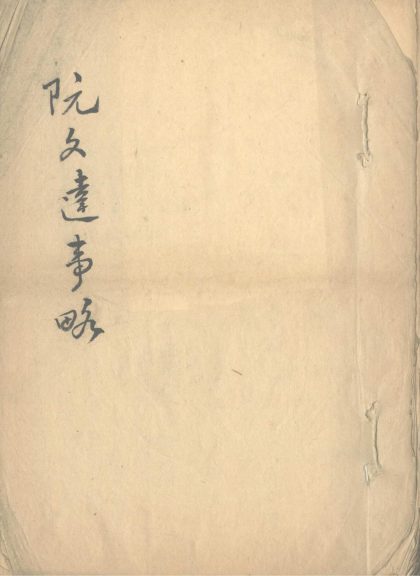 阮文達事略